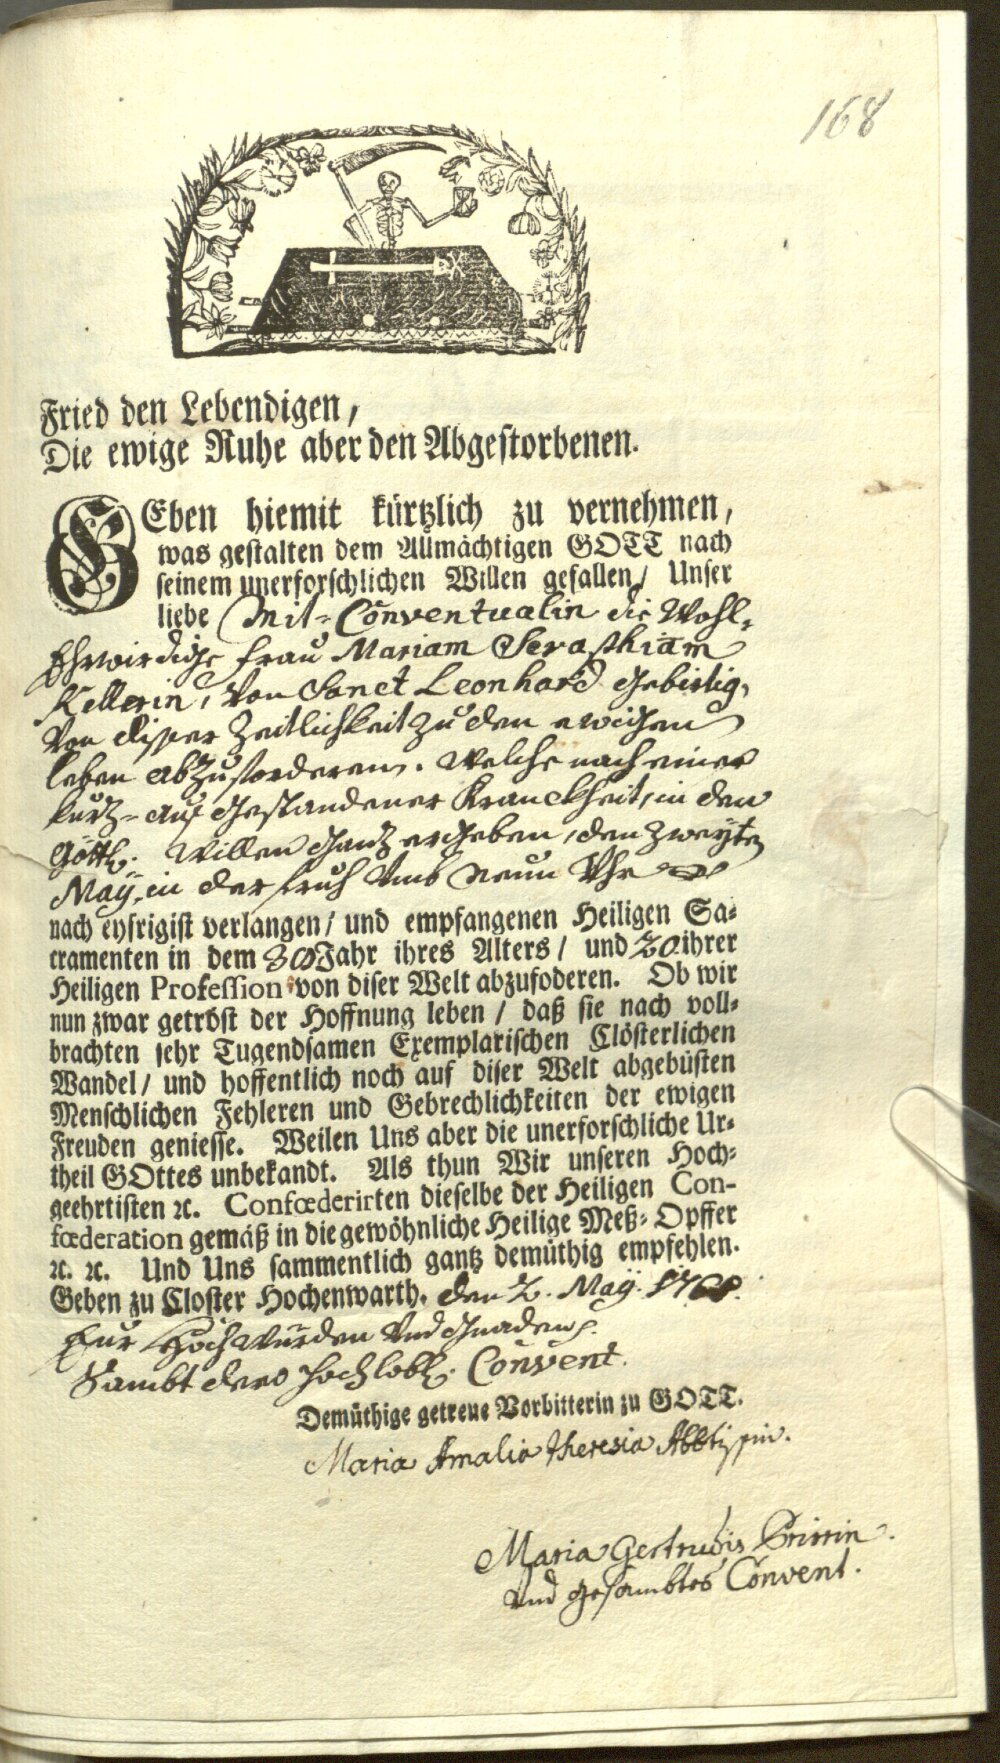 168
Fried den Lebendigen,
Die ewige Ruhe aber den Abgestorbenen.
GEben hiemit kürtzlich zu vernehmen,
was gestalten dem Allmächtigen GOTT nach
seinem unerforschlichen Willen gefallen/ Unser
liebe Mit-Conventualin die Wohl-
Ehrwirdige Frau Mariam Seraphiam
Kellerin, Von Sanct Leonhard gebirtig,
Von disser Zeitlichkeit zu den ewigen
leben abzufordern. Welche nach einer
kurtz- aus gestandener Kranckheit, in den
Göttl. Willen gantz ergeben, den Zweyten
May, in der fruh umb Neun Uhr
nach eyfrigist verlangen/ und empfangenen Heiligen Sa-
cramenten in dem Jahr ihres Alters/ und ihrer
Heiligen Profession von diser Welt abzufoderen. Ob wir
nun zwar getröst der Hoffnung leben/ daß sie nach voll-
brachten sehr Tugendsamen Exemplarischen Clösterlichen
Wandel/ und hoffentlich noch auf diser Welt abgebüsten
Menschlichen Fehleren und Gebrechlichkeiten der ewigen
Freuden geniesse. Weilen Uns aber die unerforschliche Ur-
theil GOttes unbekandt. Als thun Wir unseren Hoch-
geehrtisten ꝛc. Confœderirten dieselbe der Heiligen Con-
fœderation gemäß in die gewöhnliche Heilige Meß-Opffer
ꝛc. ꝛc. Und Uns sammentlich gantz demüthig empfehlen.
Geben zu Closter Hochenwarth, den 2. May.
Eur Hochwürden Und Gnaden
Sambt dero hochlobl. Convent.
Demüthige getreue Vorbitterin zu GOTT.
Maria Amalia Theresia Abbtissin.
Maria Gertrudis Priorin.
Und gesambtes Convent.